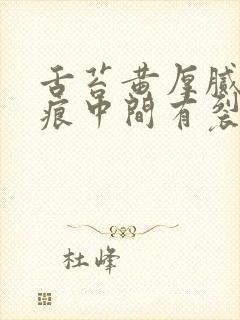 舌苔黄厚腻
痕中間有裂
杜峰